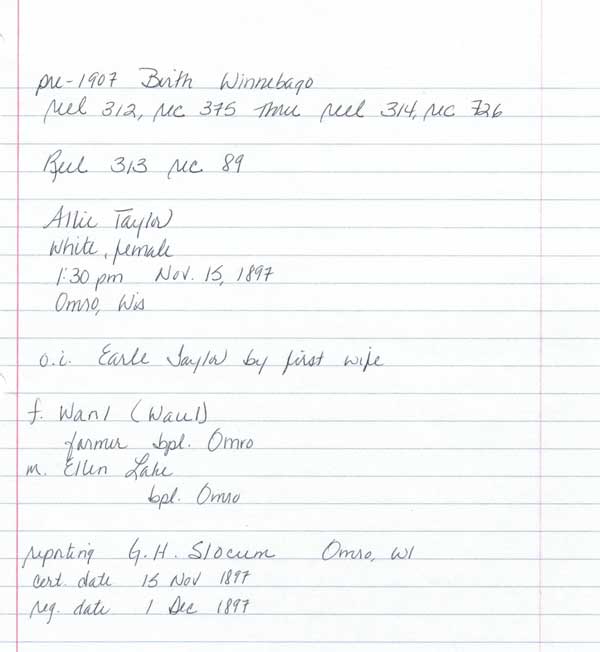 pre-1907 Birth Winnebago
reel 312, rec 375 thru reel 314, rec 726
Reel 313 rec 89
Allie Taylor
White, female
1:30 pm Nov. 15, 1897
Omro, Wis
o.i. Earle Taylor by first wife
f. Wan1 (Wau1)
farmer bpl. Omro
m. Ellen Lake
bpl. Omro
reporting G. H. Slocum Omro, WI
cert. date 15 Nov 1897
reg. date 1 Dec 1897